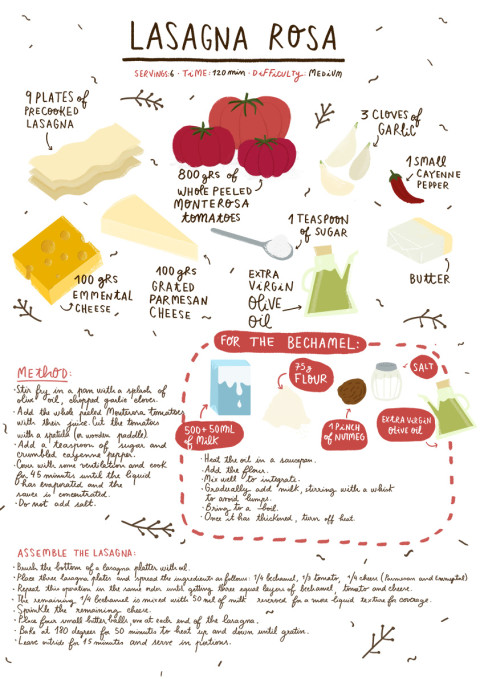 LASAGNA ROSA
SERVINGS:6 · TIME: 120 min · DIFFICULTY: MEDIUM
9 PLATES of
PRECOOKED
LASAGNA
800 grs of
WHOLE PEELED
MONTEROSA
tomatoes
3 CLOVES of
GARLIC
1 SMALL
CAYENNE
PEPPER
100 GRS
EMMENTAL
CHEESE
100 GRS
GRATED
PARMESAN
CHEESE
1 TEASPOON
of SUGAR
EXTRA
VIRGIN
OLIVE
oil
BUTTER
FOR THE BECHAMEL:
500+50ML
of Milk
75g
FLOUR
1 PINCH
of NUTMEG
SALT
EXTRA VIRGIN
OLIVE oil
· Heat the oil in a saucepan.
· Add the flour.
· Mix well to integrate.
· Gradually add milk, stirring with a whisk
to avoid lumps.
· Bring to a boil.
· Once it has thickened, turn off heat
METHOD:
· Stir fry in a pan with a splash of
olive oil, chopped garlic cloves.
· Add the whole peeled Monterosa tomatoes
with their juice. Cut the tomatoes
with a spatula (or wooden paddle).
· Add a teaspoon of sugar and
crumbled cayenne pepper.
· Cover with some ventilation and cook
for 45 minutes until the liquid
has evaporated and the
sauce is concentrated.
· Do not add salt.
ASSEMBLE THE LASAGNA:
· Brush the bottom of a lasagna platter with oil.
· Place three lasagna plates and spread the ingredients as follows: 1/4 bechamel, 1/3 tomato, 1/4 cheese (Parmesan and Emmental)
· Repeat this operation in the same order until getting three equal layers of bechamel, tomato and cheese.
· The remaining 1/4 bechamel is mixed with 50 ml of milk reserved for a more liquid texture for coverage.
· Sprinkle the remaining cheese.
· Place four small butter balls, one at each end of the lasagna.
· Bake at 180 degrees for 50 minutes to heat up and down until gratin.
· Leave outside for 15 minutes and serve in portions.